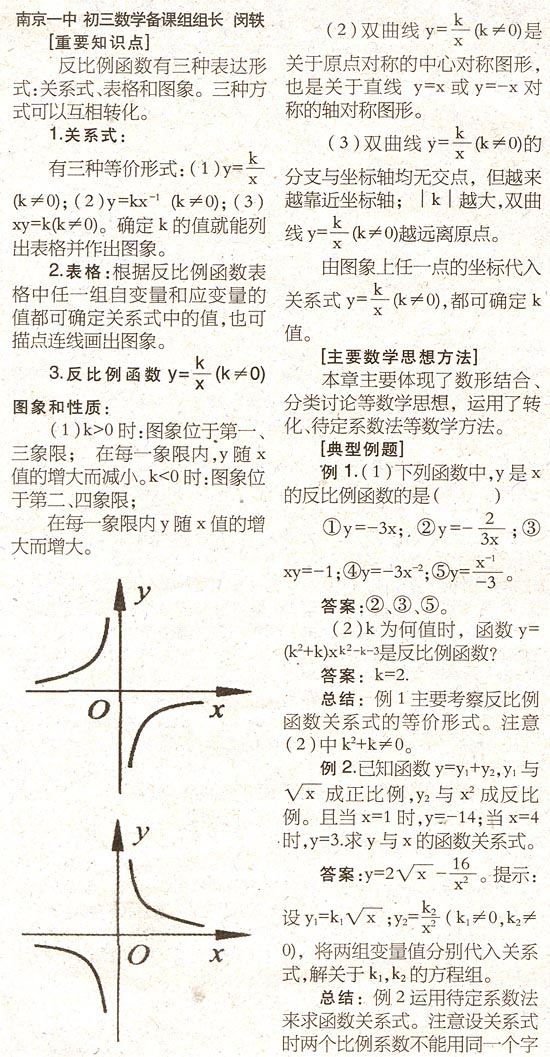 南京一中 初三数学备课组组长 闵轶
[重要知识点]
反比例函数有三种表达形
式:关系式、表格和图象。三种方
式可以互相转化。
1.关系式:
有三种等价形式:(1)y=k/x
(k≠0);(2)y=kx⁻¹ (k≠0);(3)
xy=k(k≠0)。确定k的值就能列
出表格并作出图象。
2.表格:根据反比例函数表
格中任一组自变量和应变量的
值都可确定关系式中的值,也可
描点连线画出图象。
3.反比例函数 y=k/x(k≠0)
图象和性质:
(1)k>0时:图象位于第一、
三象限; 在每一象限内,y随x
值的增大而减小。k<0时:图象位
于第二、四象限;
在每一象限内y随x值的增
大而增大。
y
O
x
y
O
x
(2)双曲线y=k/x(k≠0)是
关于原点对称的中心对称图形,
也是关于直线 y=x或y=-x对
称的轴对称图形。
(3)双曲线y=k/x(k≠0)的
分支与坐标轴均无交点,但越来
越靠近坐标轴;|k|越大,双曲
线y=k/x(k≠0)越远离原点。
由图象上任一点的坐标代入
关系式y=k/x(k≠0),都可确定k
值。
[主要数学思想方法]
本章主要体现了数形结合、
分类讨论等数学思想,运用了转
化、待定系数法等数学方法。
[典型例题]
例1.(1)下列函数中,y是x
的反比例函数的是( )
①y=-3x;②y=-2/3x;③
xy=-1;④y=-3x⁻²;⑤y=x⁻¹/-3。
答案:②、③、⑤。
(2)k为何值时,函数y=
(k²+k)x^(k²-k-3)是反比例函数?
答案:k=2.
总结:例1主要考察反比例
函数关系式的等价形式。注意
(2)中k²+k≠0。
例2.已知函数y=y₁+y₂,y₁与
√x成正比例,y₂与x²成反比
例。且当x=1时,y=-14;当x=4
时,y=3.求y与x的函数关系式。
答案:y=2√x-16/x²。提示:
设y₁=k₁√x;y₂=k₂/x²(k₁≠0,k₂≠
0),将两组变量值分别代入关系
式,解关于k₁,k₂的方程组。
总结:例2运用待定系数法
来求函数关系式。注意设关系式
时两个比例系数不能用同一个字